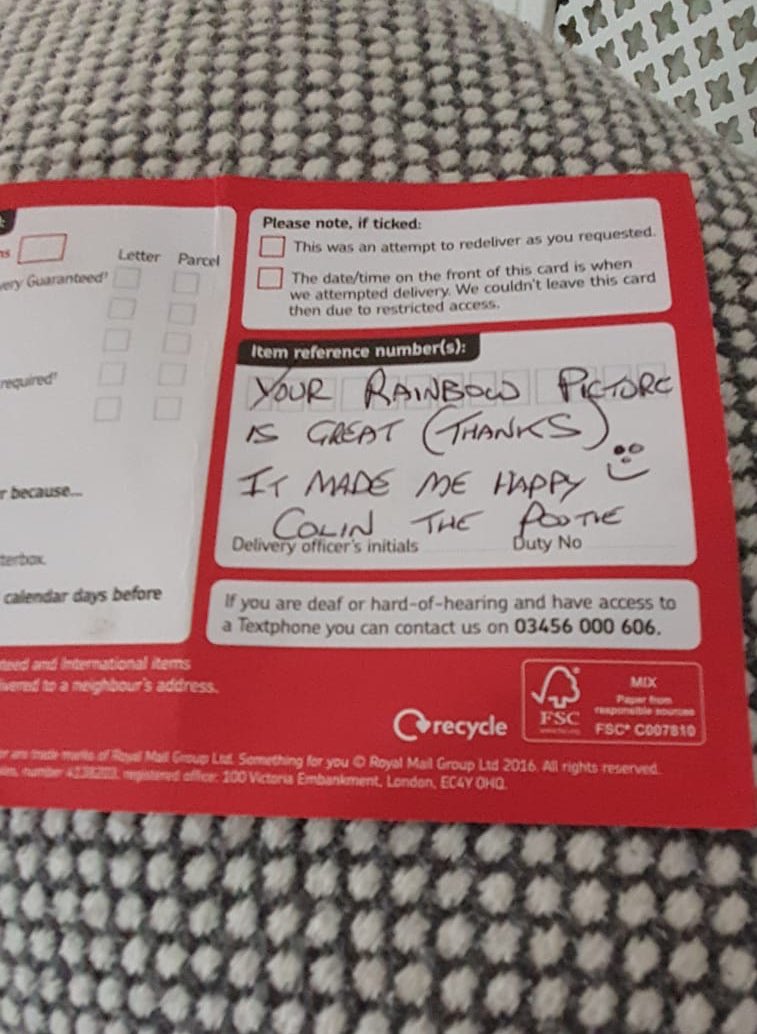 Letter Parcel
very Guaranteed¹
required¹
r because...
terbox.
calendar days before
teed and International items
ivered to a neighbour's address.
Please note, if ticked:
This was an attempt to redeliver as you requested.
The date/time on the front of this card is when
we attempted delivery. We couldn't leave this card
then due to restricted access.
Item reference number(s):
YOUR RAINBOW PICTURE
IS GREAT (THANKS)
IT MADE ME HAPPY
COLIN THE POSTIE
Delivery officer's initials Duty No
If you are deaf or hard-of-hearing and have access to
a Textphone you can contact us on 03456 000 606.
recycle
FSC
MIX
Paper from
responsible sources
FSC® C007810
or are trade marks of Royal Mail Group Ltd. Something for you © Royal Mail Group Ltd 2016. All rights reserved.
registered office: 100 Victoria Embankment, London, EC4Y 0HQ.